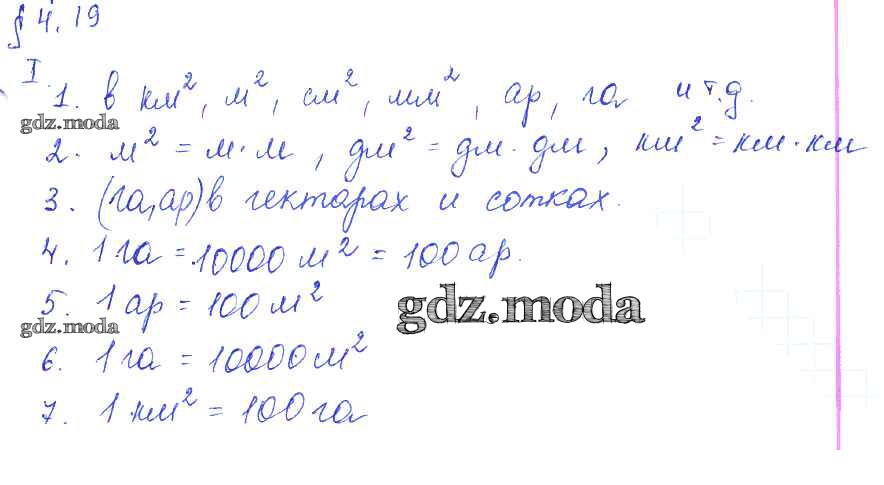 § 4.19
I.
1. в км², м², см², мм², ар, га и т.д.
gdz.moda
2. м² = м·м, дм² = дм·дм, км² = км·км
3. (га, ар) в гектарах и сотках.
4. 1 га = 10000 м² = 100 ар.
5. 1 ар = 100 м²
gdz.moda
gdz.moda
6. 1 га = 10000 м²
7. 1 км² = 100 га